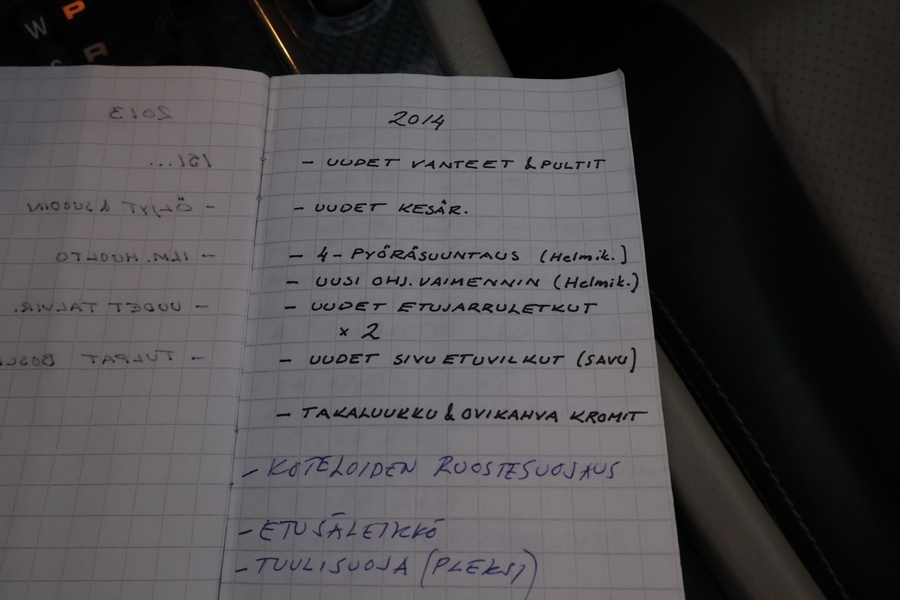 W P
R
2013
151...
- ÖLJYT & SUODIN
- ILM. HUOLTO
- UUDET TALVIR.
- TULPAT BOSC
2014
- UUDET VANTEET & PULTIT
- UUDET KESÄR.
- 4-PYÖRÄSUUNTAUS (Helmik.)
- UUSI OHJ.VAIMENNIN (Helmik.)
- UUDET ETUJARRULETKUT
x 2
- UUDET SIVU ETUVILKUT (SAVU)
- TAKALUUKKU & OVIKAHVA KROMIT
- KOTELOIDEN RUOSTESUOJAUS
- ETUSÄLEIKKÖ
- TUULISUOJA (PLEKSI)